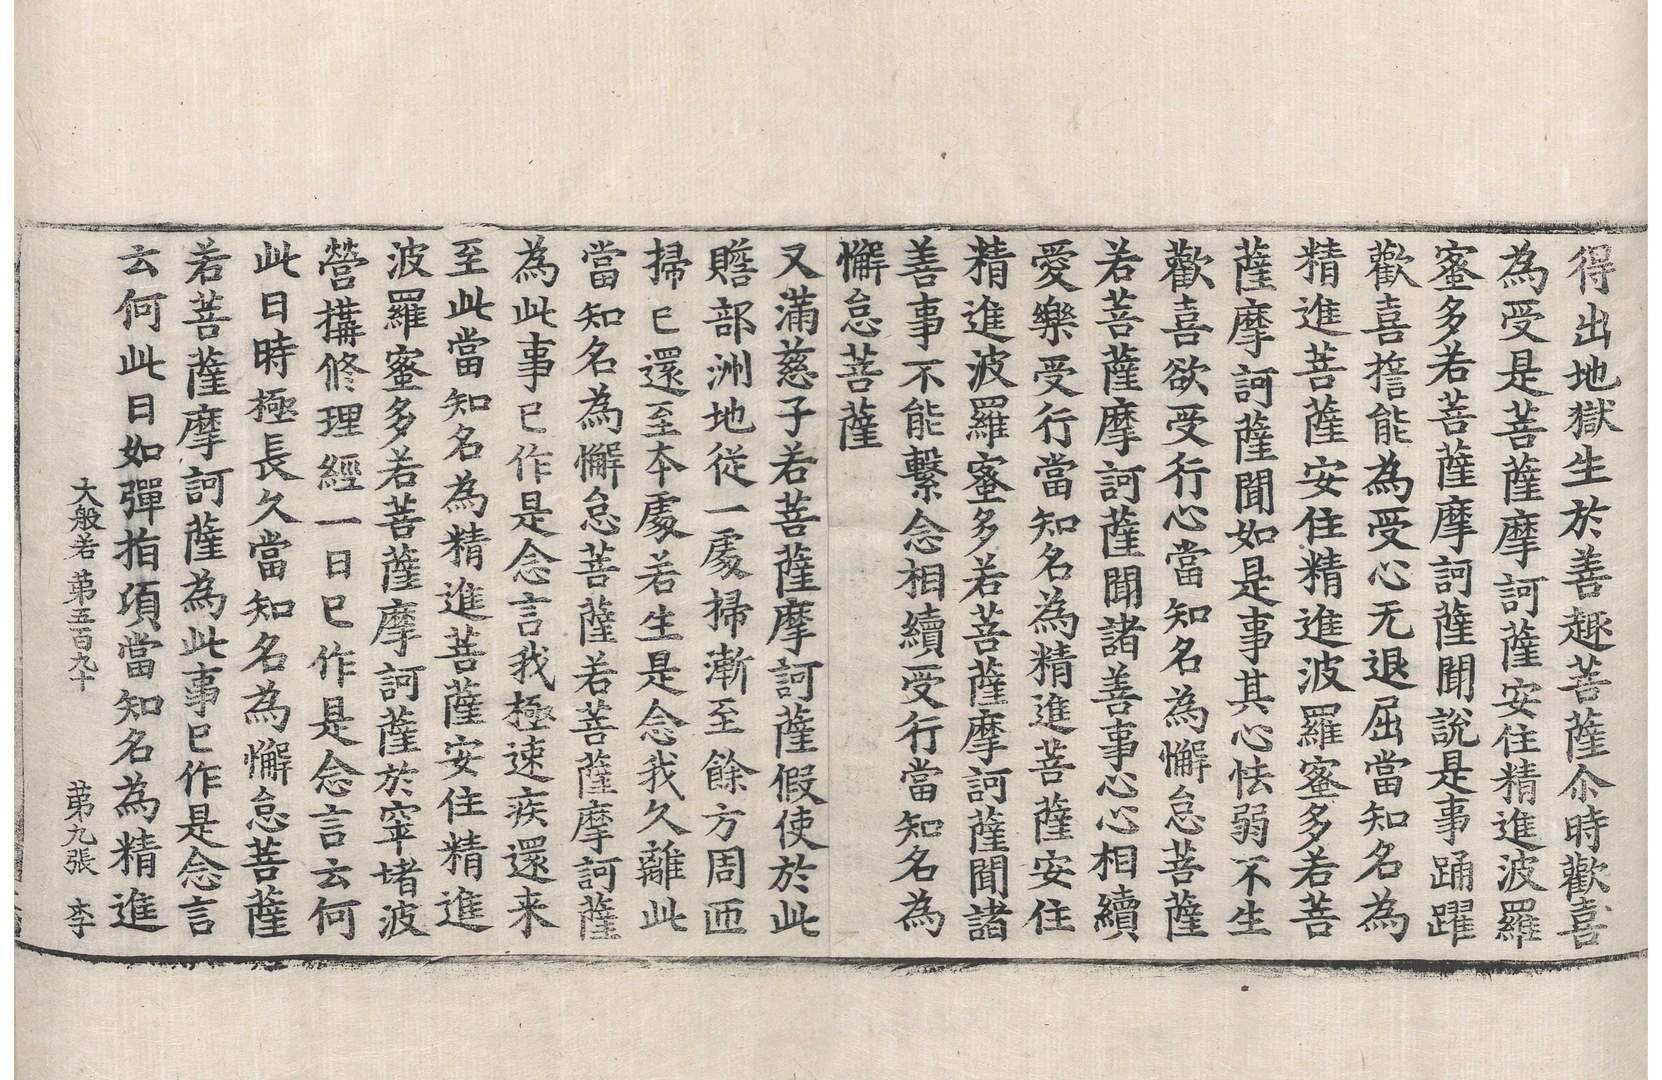 得出地獄生於善趣菩薩尒時歡喜
為受是菩薩摩訶薩安住精進波羅
蜜多若菩薩摩訶薩聞說是事踊躍
歡喜擔能為受心无退屈當知名為
精進菩薩安住精進波羅蜜多若菩
薩摩訶薩聞如是事其心怯弱不生
歡喜欲受行心當知名為懈怠菩薩
若菩薩摩訶薩聞諸善事心心相續
愛樂受行當知名為精進菩薩安住
精進波羅蜜多若菩薩摩訶薩聞諸
善事不能繫念相續受行當知名為
懈怠菩薩
又滿慈子若菩薩摩訶薩假使於此
贍部洲地從一處掃漸至餘方周匝
掃已還至本處若生是念我久離此
當知名為懈怠菩薩若菩薩摩訶薩
為此事已作是念言我極速疾還来
至此當知名為精進菩薩安住精進
波羅蜜多若菩薩摩訶薩於窣堵波
營搆修理經一日已作是念言云何
此日時極長久當知名為懈怠菩薩
若菩薩摩訶薩為此事已作是念言
云何此日如彈指頃當知名為精進
大般若第五百九十 第九張 李